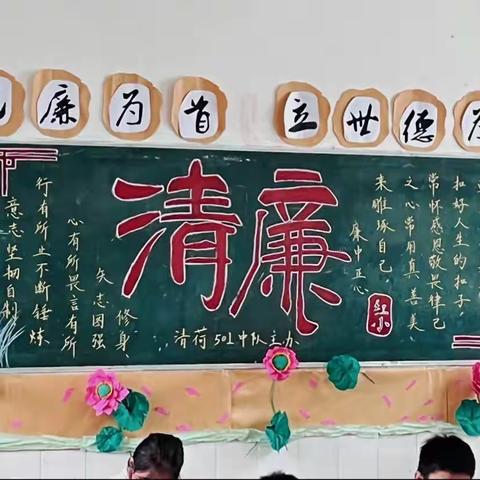 廉为首
立世德为
清廉
修身
矢志图强
心有所畏言有所
行有所业不断锤炼
意志坚韧自制
扣好人生的扣子
常怀感恩敬畏律己
之心常用真善美
来雕琢自己
廉中正心
清荷501中队主办